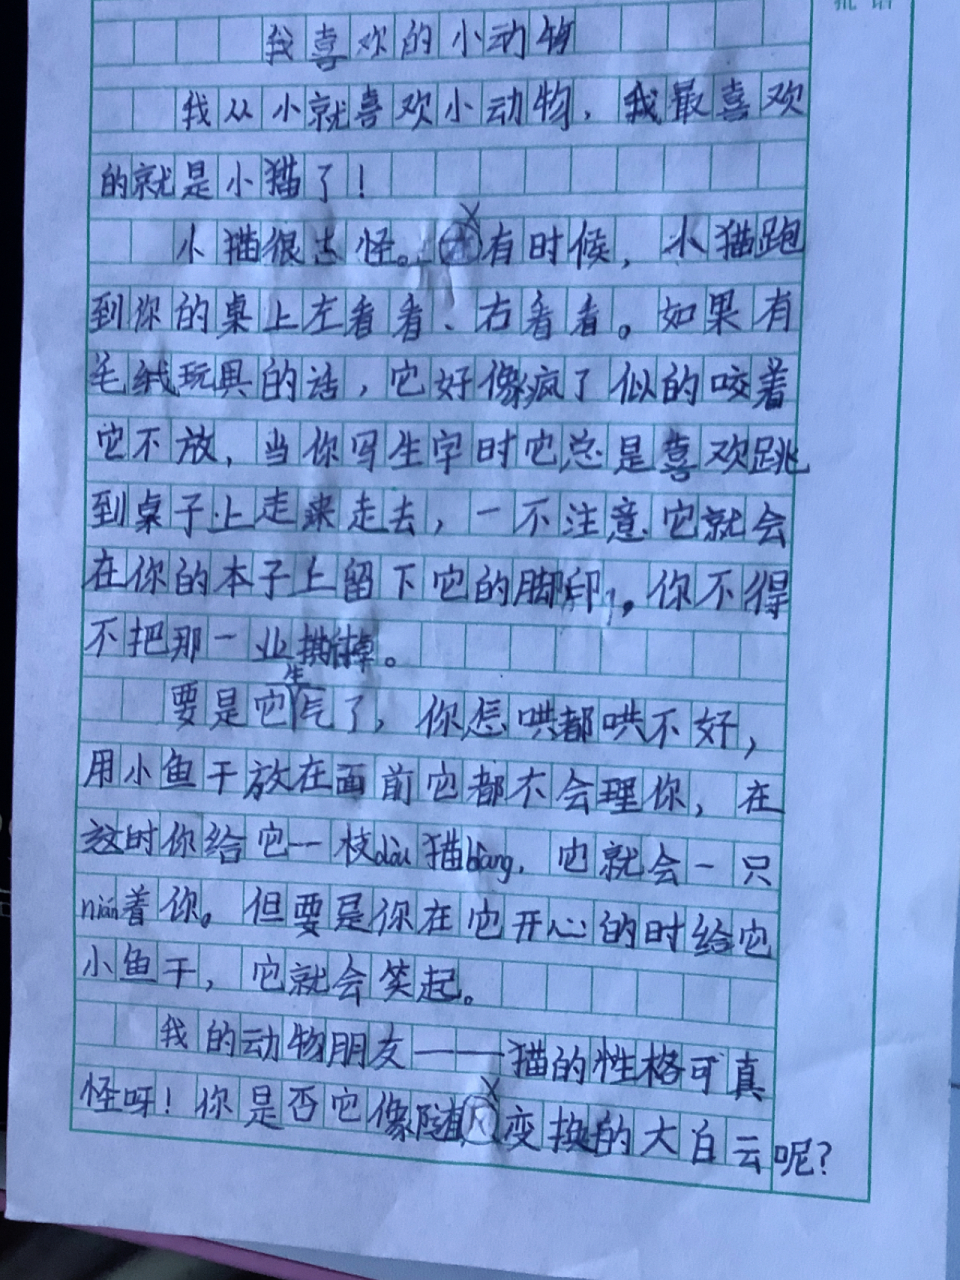 批语
我喜欢的小动物
我从小就喜欢小动物，我最喜欢
的就是小猫了！
小猫很古怪。有时候，小猫跑
到你的桌上左看看、右看看。如果有
毛绒玩具的话，它好像疯了似的咬着
它不放，当你写生字时它总是喜欢跳
到桌子上走来走去，一不注意它就会
在你的本子上留下它的脚印，。你不得
不把那一业撕掉。
要是它生气了，你怎哄都哄不好，
用小鱼干放在面前它都不会理你，在
这时你给它一枝dòu猫bàng，它就会一只
nián着你。但要是你在它开心的时给它
小鱼干，它就会笑起。
我的动物朋友——猫的性格可真
怪呀！你是否它像随变换的大白云呢？